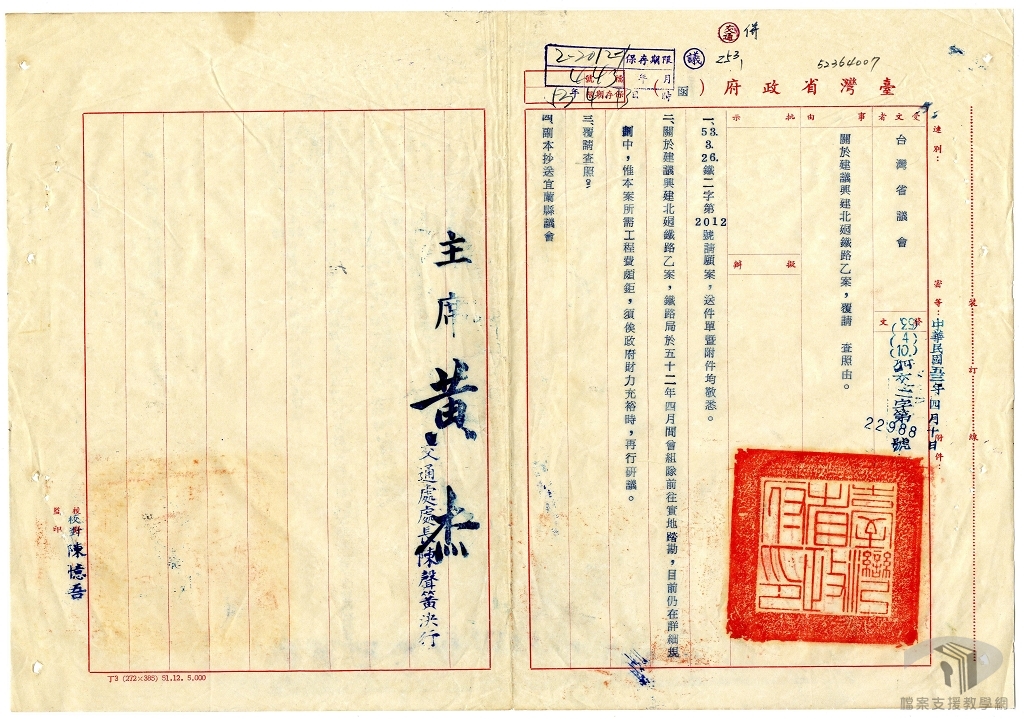 交通
併
議
253
52364007
2-2012-1
443
號
保存期限
年 月
日 時
臺灣省政府(函)
速別：
受文者
台灣省議會
事由
關於建議興建北廻鐵路乙案，覆請 查照由。
批示
擬辦
裝訂線
密等：
附件：
中華民國五三年四月十日
發文
(53)
(4)
(10.)
府交二字第
22988
號
一、53.3.26.鐵二字第2012號請願案，送件單暨附件均敬悉。
二、關於建議興建北廻鐵路乙案，鐵路局於五十二年四月間會組隊前往實地踏勘，目前仍在詳細規
劃中，惟本案所需工程費頗鉅，須俟政府財力充裕時，再行研議。
三、覆請查照。
四、副本抄送宜蘭縣議會
主席黃杰
交通處處長陳聲簧決行
監印
校對
校對 陳憶吾
臺灣省政府印
丁3 (272×385) 51.12. 5,000
檔案支援教學網